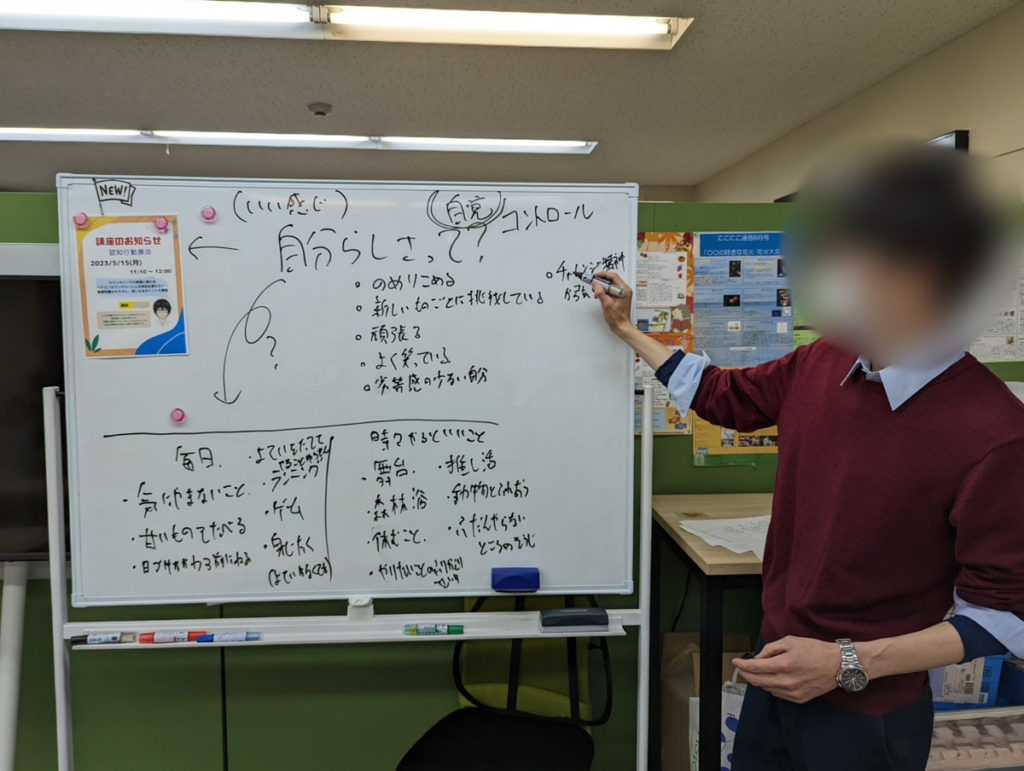 NEW!
(いい感じ)
自覚
コントロール
自分らしさって?
講座のお知らせ
認知行動療法
2023/5/15(月)
11:10 ~ 12:00
?
。のめりこめる
。新しいものごとに挑戦している
。頑張る
。よく笑っている
。劣等感の少ない自分
。チャレンジ精神
毎日
・よていをたてて
・ランニング
・ゲーム
・身じたく
・気にやまないこと
・甘いものたべる
・日づけがかわる前にねる
時々やるといいこと
・舞台
・推し活
・森林浴
・動物とふれあう
・休むこと
・ふだんやらない
ところのそうじ
・やりたいことのふりかえり
にこにこ通信8月号
「〇〇の好きな花火/花火大会